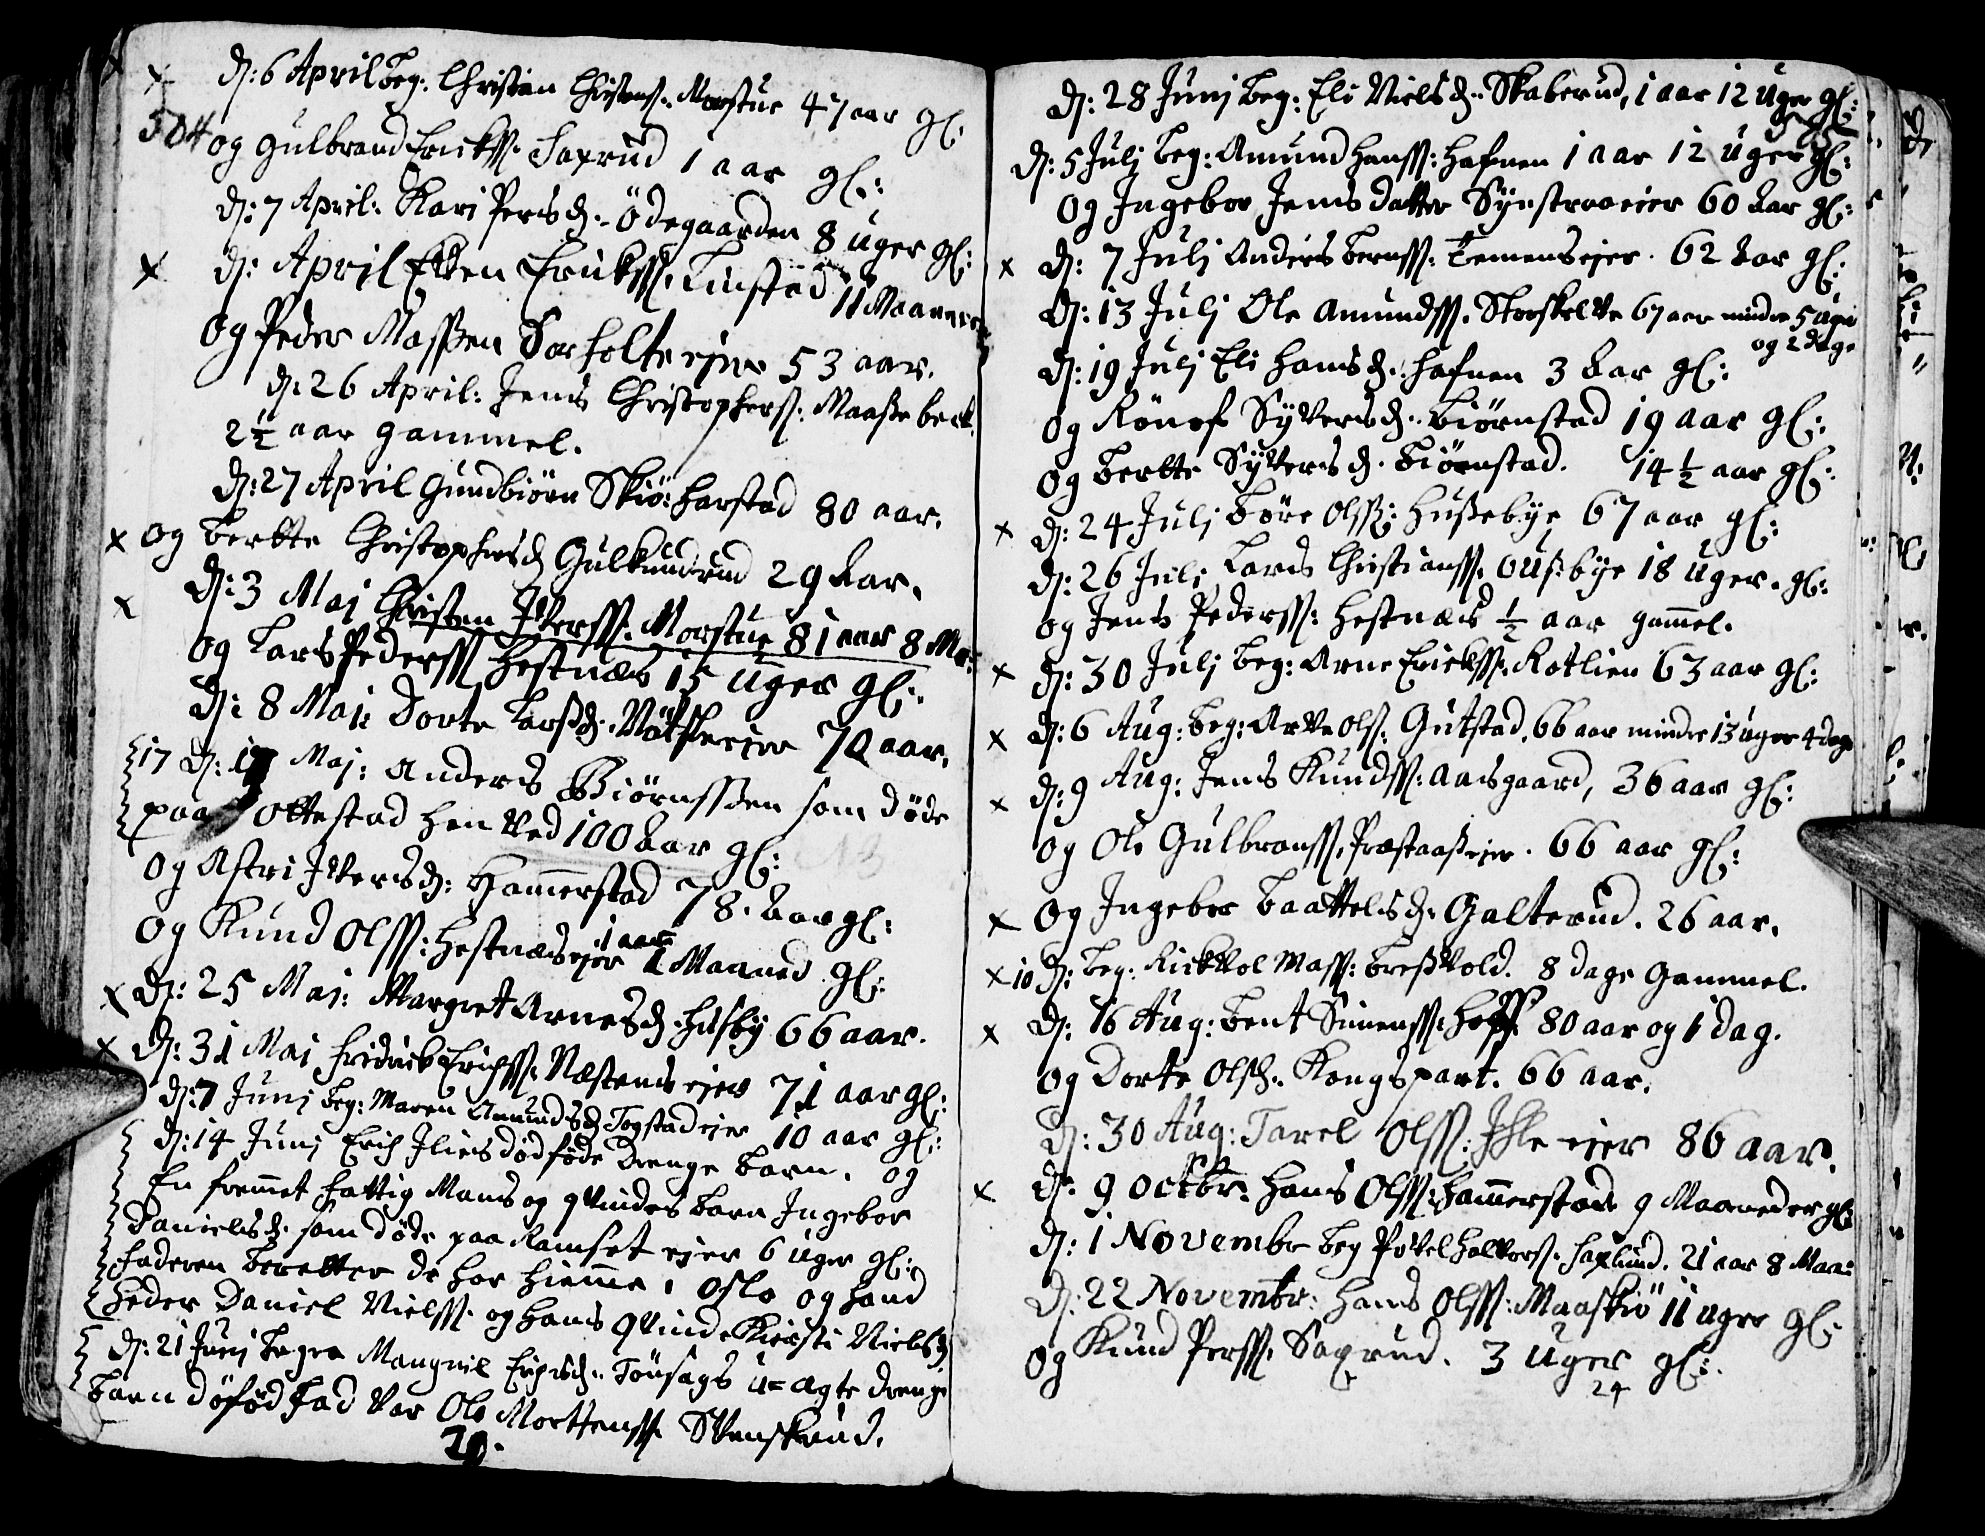 d: 6 April beg: Christian Christens: Morstue 47 aar gl:
504 og Gulbrand Ericks: Saxrud 1 aar gl:
d: 7 April: Kari Persd: Ödegaarden 8 uger gl:
d: April Eden Ericks: Linstad 11 Maaneder
og Peder Massen Sorholte ejer 53 aar.
d: 26 April: Jens Christophers: Maassebeck
2½ aar gammel.
d: 27 April Gundbiörn Skiö: Harstad 80 aar.
og Berthe Christophersd Gulkundrud 29 Aar.
d: 3 Maj Christen Iverss: Morstue 81 aar 8 M:
og Lars Pederss Hestnæs 15 uger gl:
d: 8 Maj: Dorte Larsd: ejer 70 aar.
17 d: 17 Maj: Anders Biörnssen som döde
paa Ottestad hen ved 100 Aar gl:
og Astri Iversd: Hammerstad 78. Aar gl:
og Knud Olss: Hestnæs ejer 1 aar 1 Maaned gl:
d: 25 Maj: Margret Arnesd: Husby 66 aar.
d: 31 Maj Fridrick Erichss: Næstens ejer 71 aar gl:
d: 7 Junj beg: Maren Amundsd Togstad ejer 10 aar gl:
d: 14 Junj Erich Iliers dödföde Drenge barn. og
En fremmet fattig Mands og qvindes barn Ingebor
Danielsd: som döde paa Ramset ejer 6 uger gl:
Faderen beretter de har hiemme i Oslo og hand
heder Daniel Nielss: og hans qvinde Kiersti Nielsd
d: 21 Junj begra Mangnil Ericksd: Tönsags u=ægte drenge
barn döfód Fad var Ole Mortenss: Svenskrud.
20.
d: 28 Junj beg: Eli Nielsd: Skaberud, 1 aar 12 Uger gl:
d: 5 Julj beg: Amund Hanss: Hafnen 1 aar 12 uger gl:
og Ingebor Jensdatter Synstraaejer 60 Aar gl:
d: 7 Julj Anders Bernss: Temensejer. 62 Aar gl:
d: 13 Julj Ole Amundss: Storskelve 67 aar mindre 5 uger
og 2 dage
d: 19 Julj Eli Hansd: Hafnen 3 Aar gl:
og Rönof Syversd: Biörnstad 19 aar gl:
og Berte Syversd: Biörnstad. 14½ aar gl:
d: 24 Julj Töre Olss: Hussebye 67 aar gl:
d: 26 Julj Lars Christianss: Oussbye 18 uger. gl:
og Jens Pederss: Hestnæs ½ aar gammel.
d: 30 Julj beg: Arne Ericks: Rotlien 63 aar gl:
d: 6 Aug: beg: Arve Ols: Gutstad. 66 aar mindre 13 uger 4 dage
d: 9 Aug: Jens Knudss: Aasgaard, 36 aar gl:
og Ole Gulbranss: Præstaassejer. 66 aar gl:
og Ingebor Baattelsd: Galterud. 26 aar.
10 d: beg: Rickvol Mass: Bressvold. 8 dage Gammel.
d: 16 Aug: Bent Simenss: Hoff 80 aar og 1 dag.
og Dorte Olsd: Kongspart. 66 aar.
d: 30 Aug: Tarel Olss: Ihle ejer 86 aar.
d: 9 Octbr: Hans Olss: Hammerstad 9 Maaneder gl:
d: 1 Novembr beg Povel Halvors: Saxlund. 21 aar 8 Maa:
d: 22 Novembr: Hans Olss: Maaskiö 11 uger gl:
og Knud Perss: Saxrud. 3 Uger gl:
24